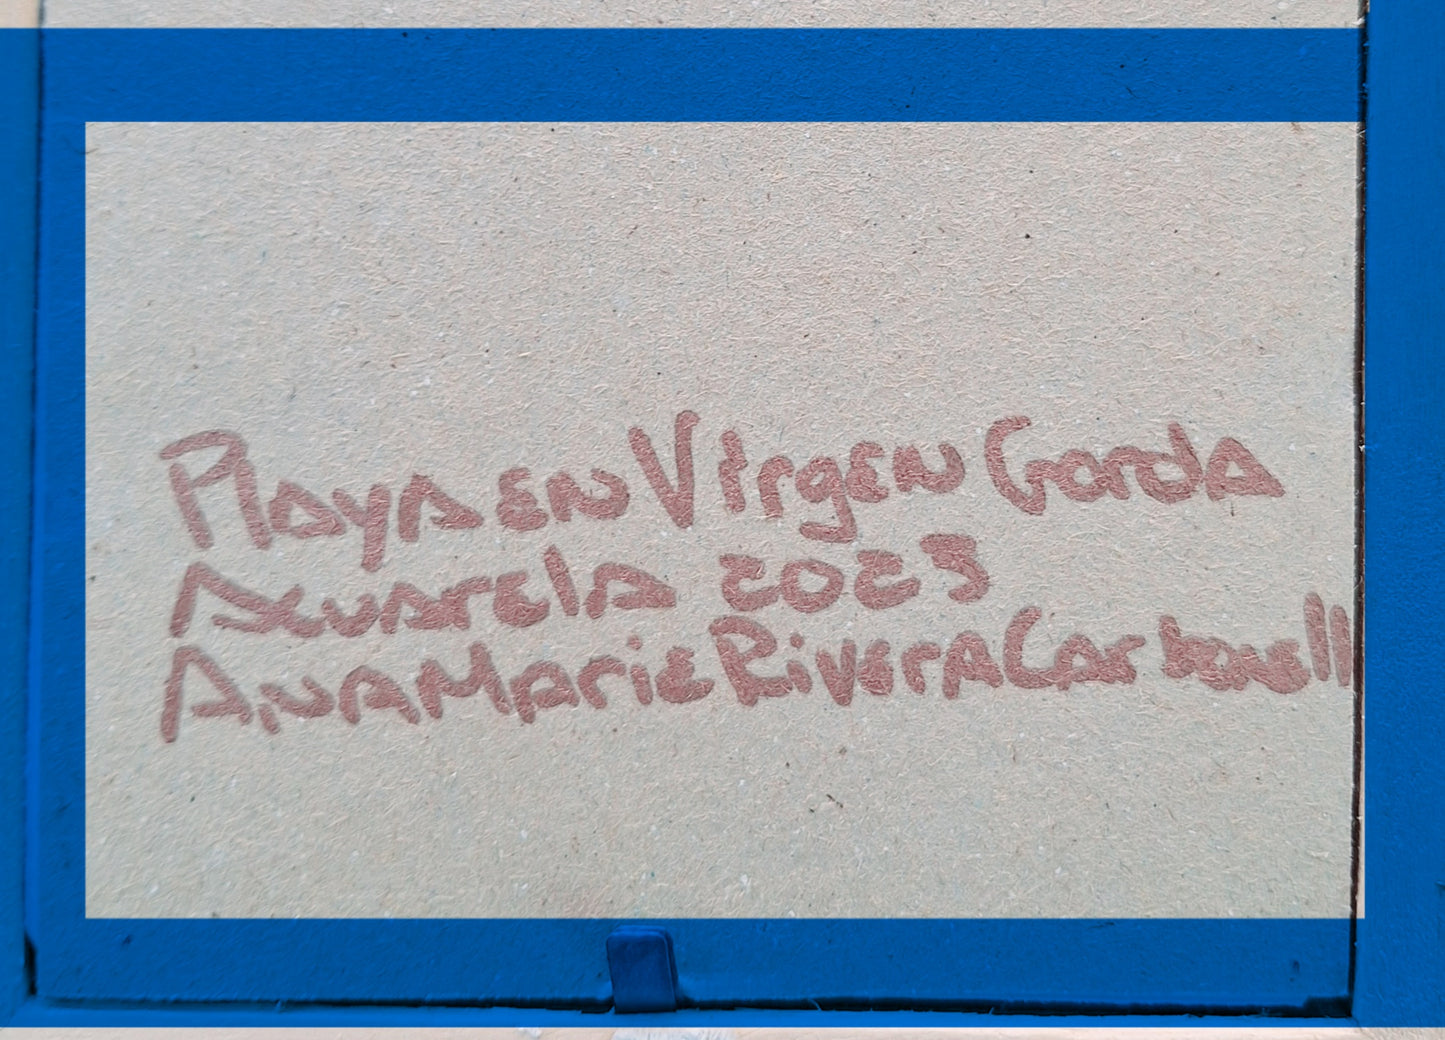 Playa en Virgen Gorda
Acuarela 2023
Ana Marie Rivera Carbonell